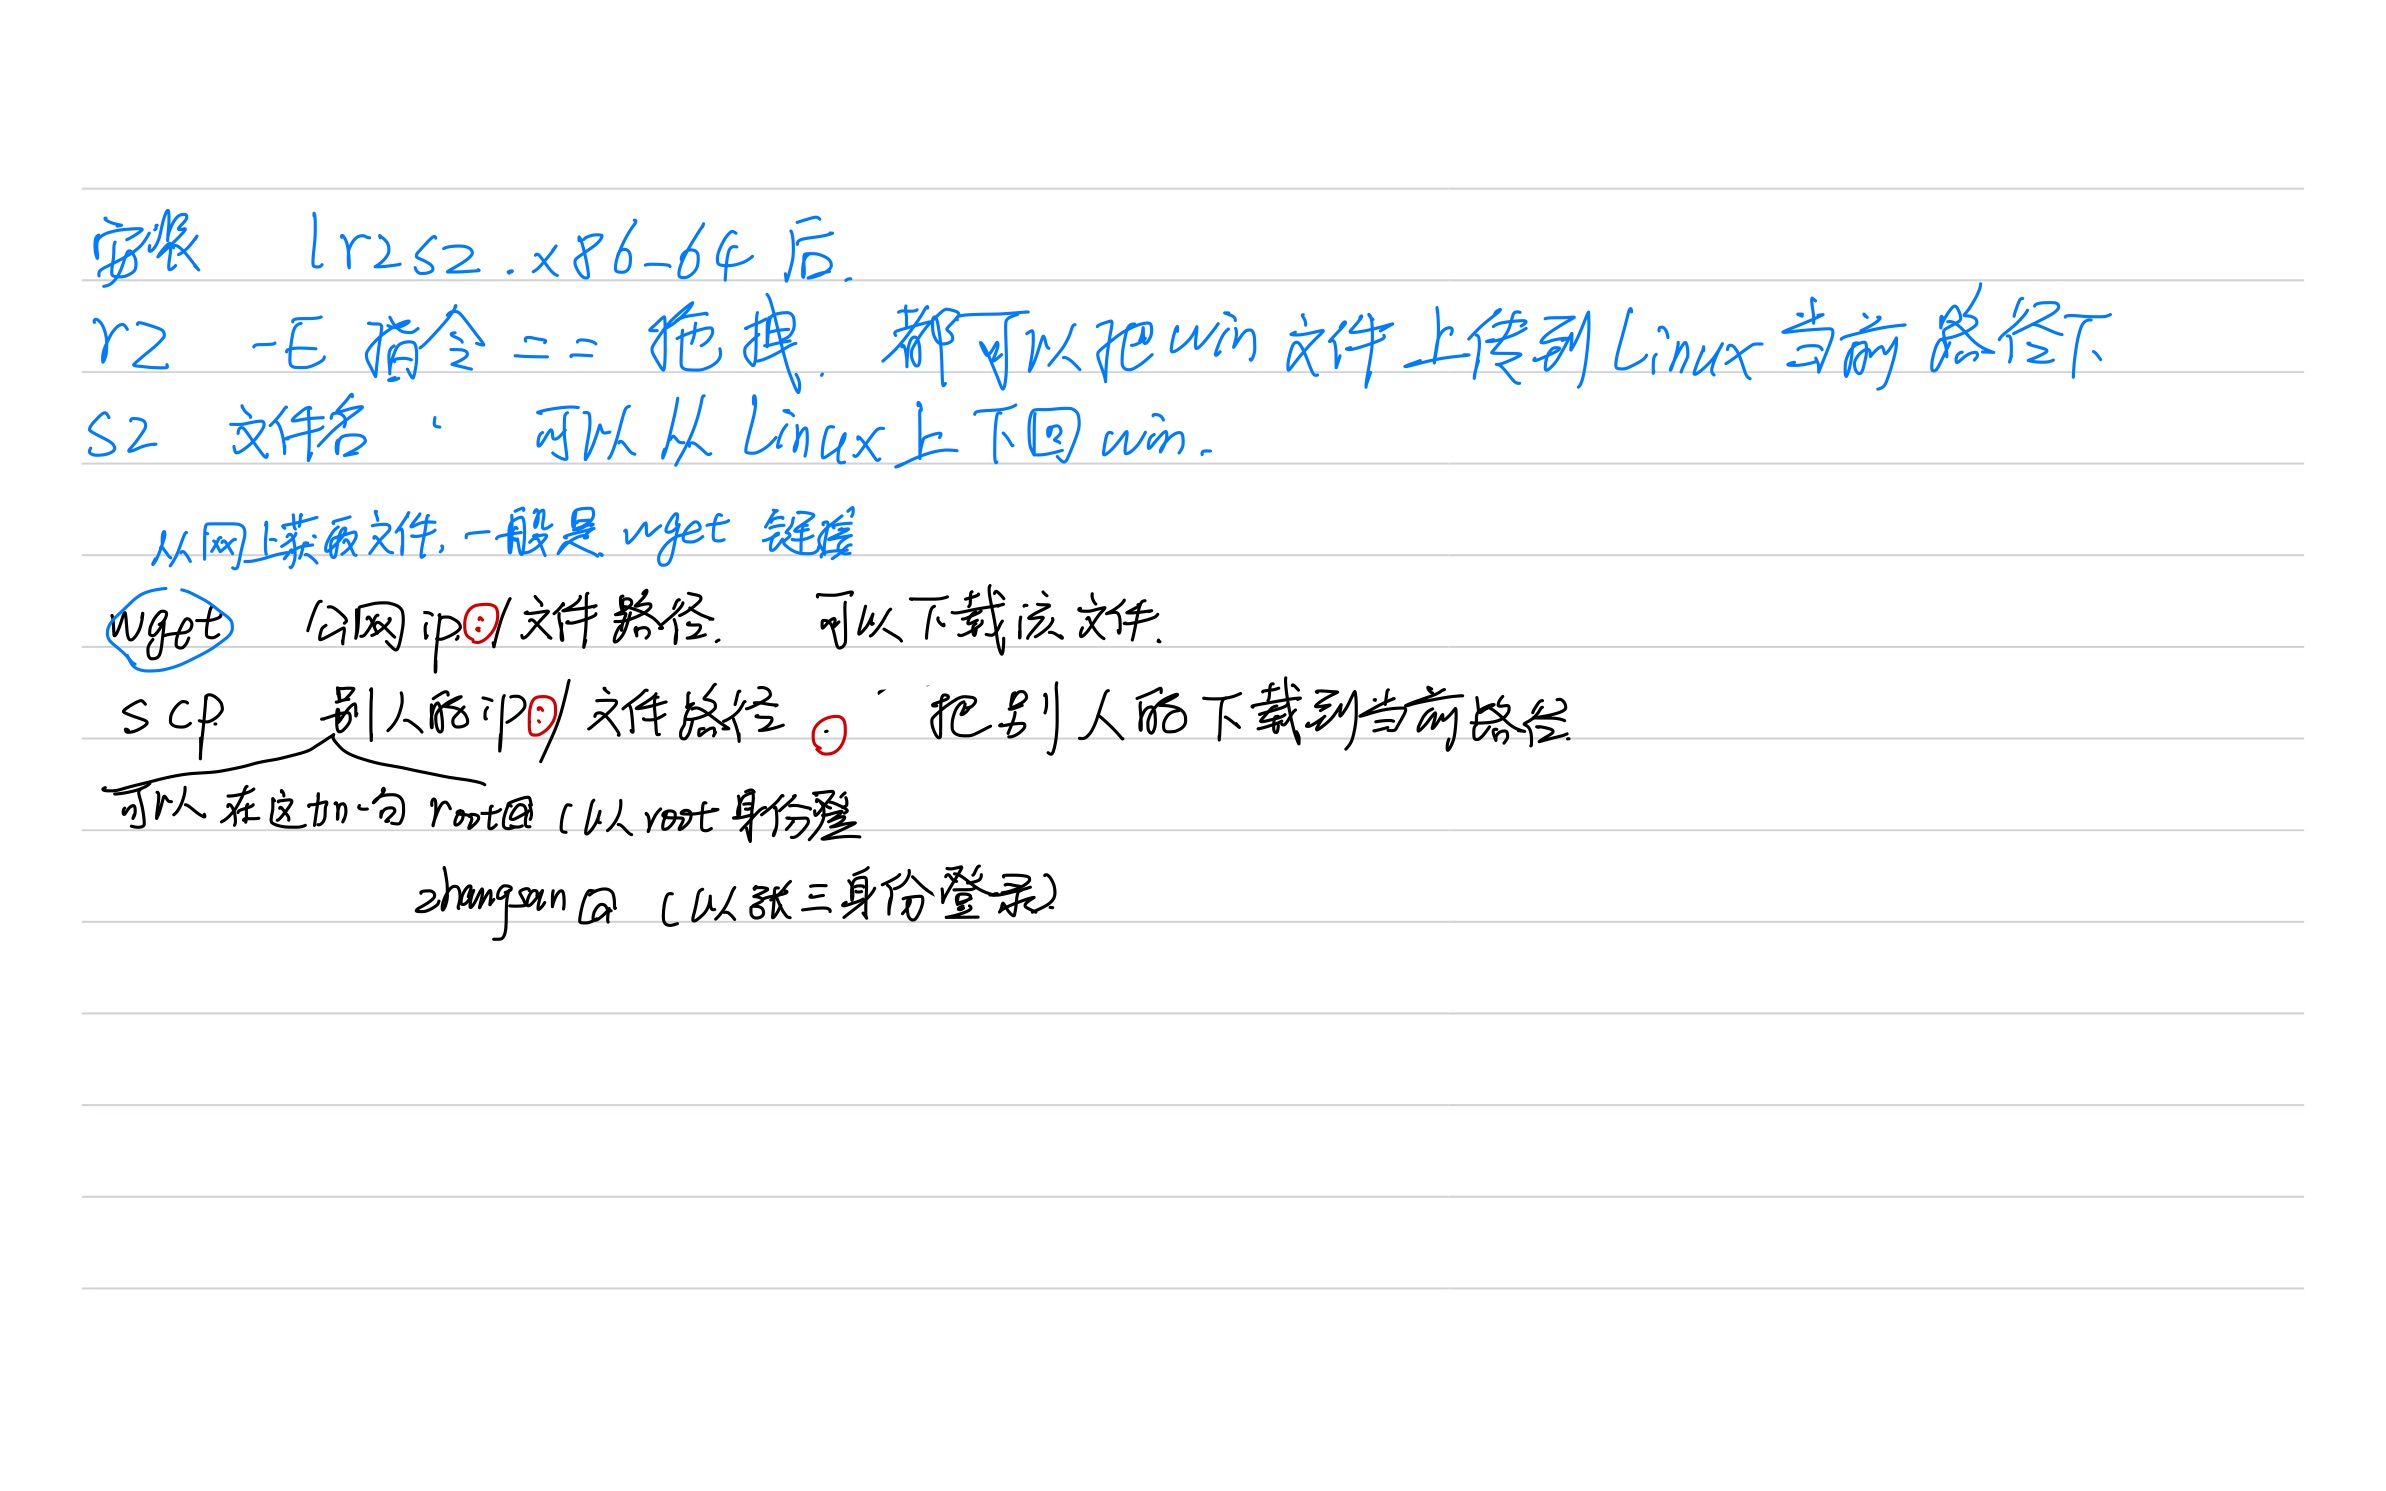 安装 lrzsz.x86-64后.
rz -E 前台 == 拖拽. 都可以把win文件上传到Linux当前路径下
sz 文件名. 可以从Linux上下回win.
从网上获取文件,一般是wget 链接
wget 公网ip:/文件路径. 可以下载该文件.
scp 别人的ip:/文件路径 . 把别人的下载到当前路径.
可以在这加一句 root@ (以root身份登
zhangsan@ (以张三身份登录)